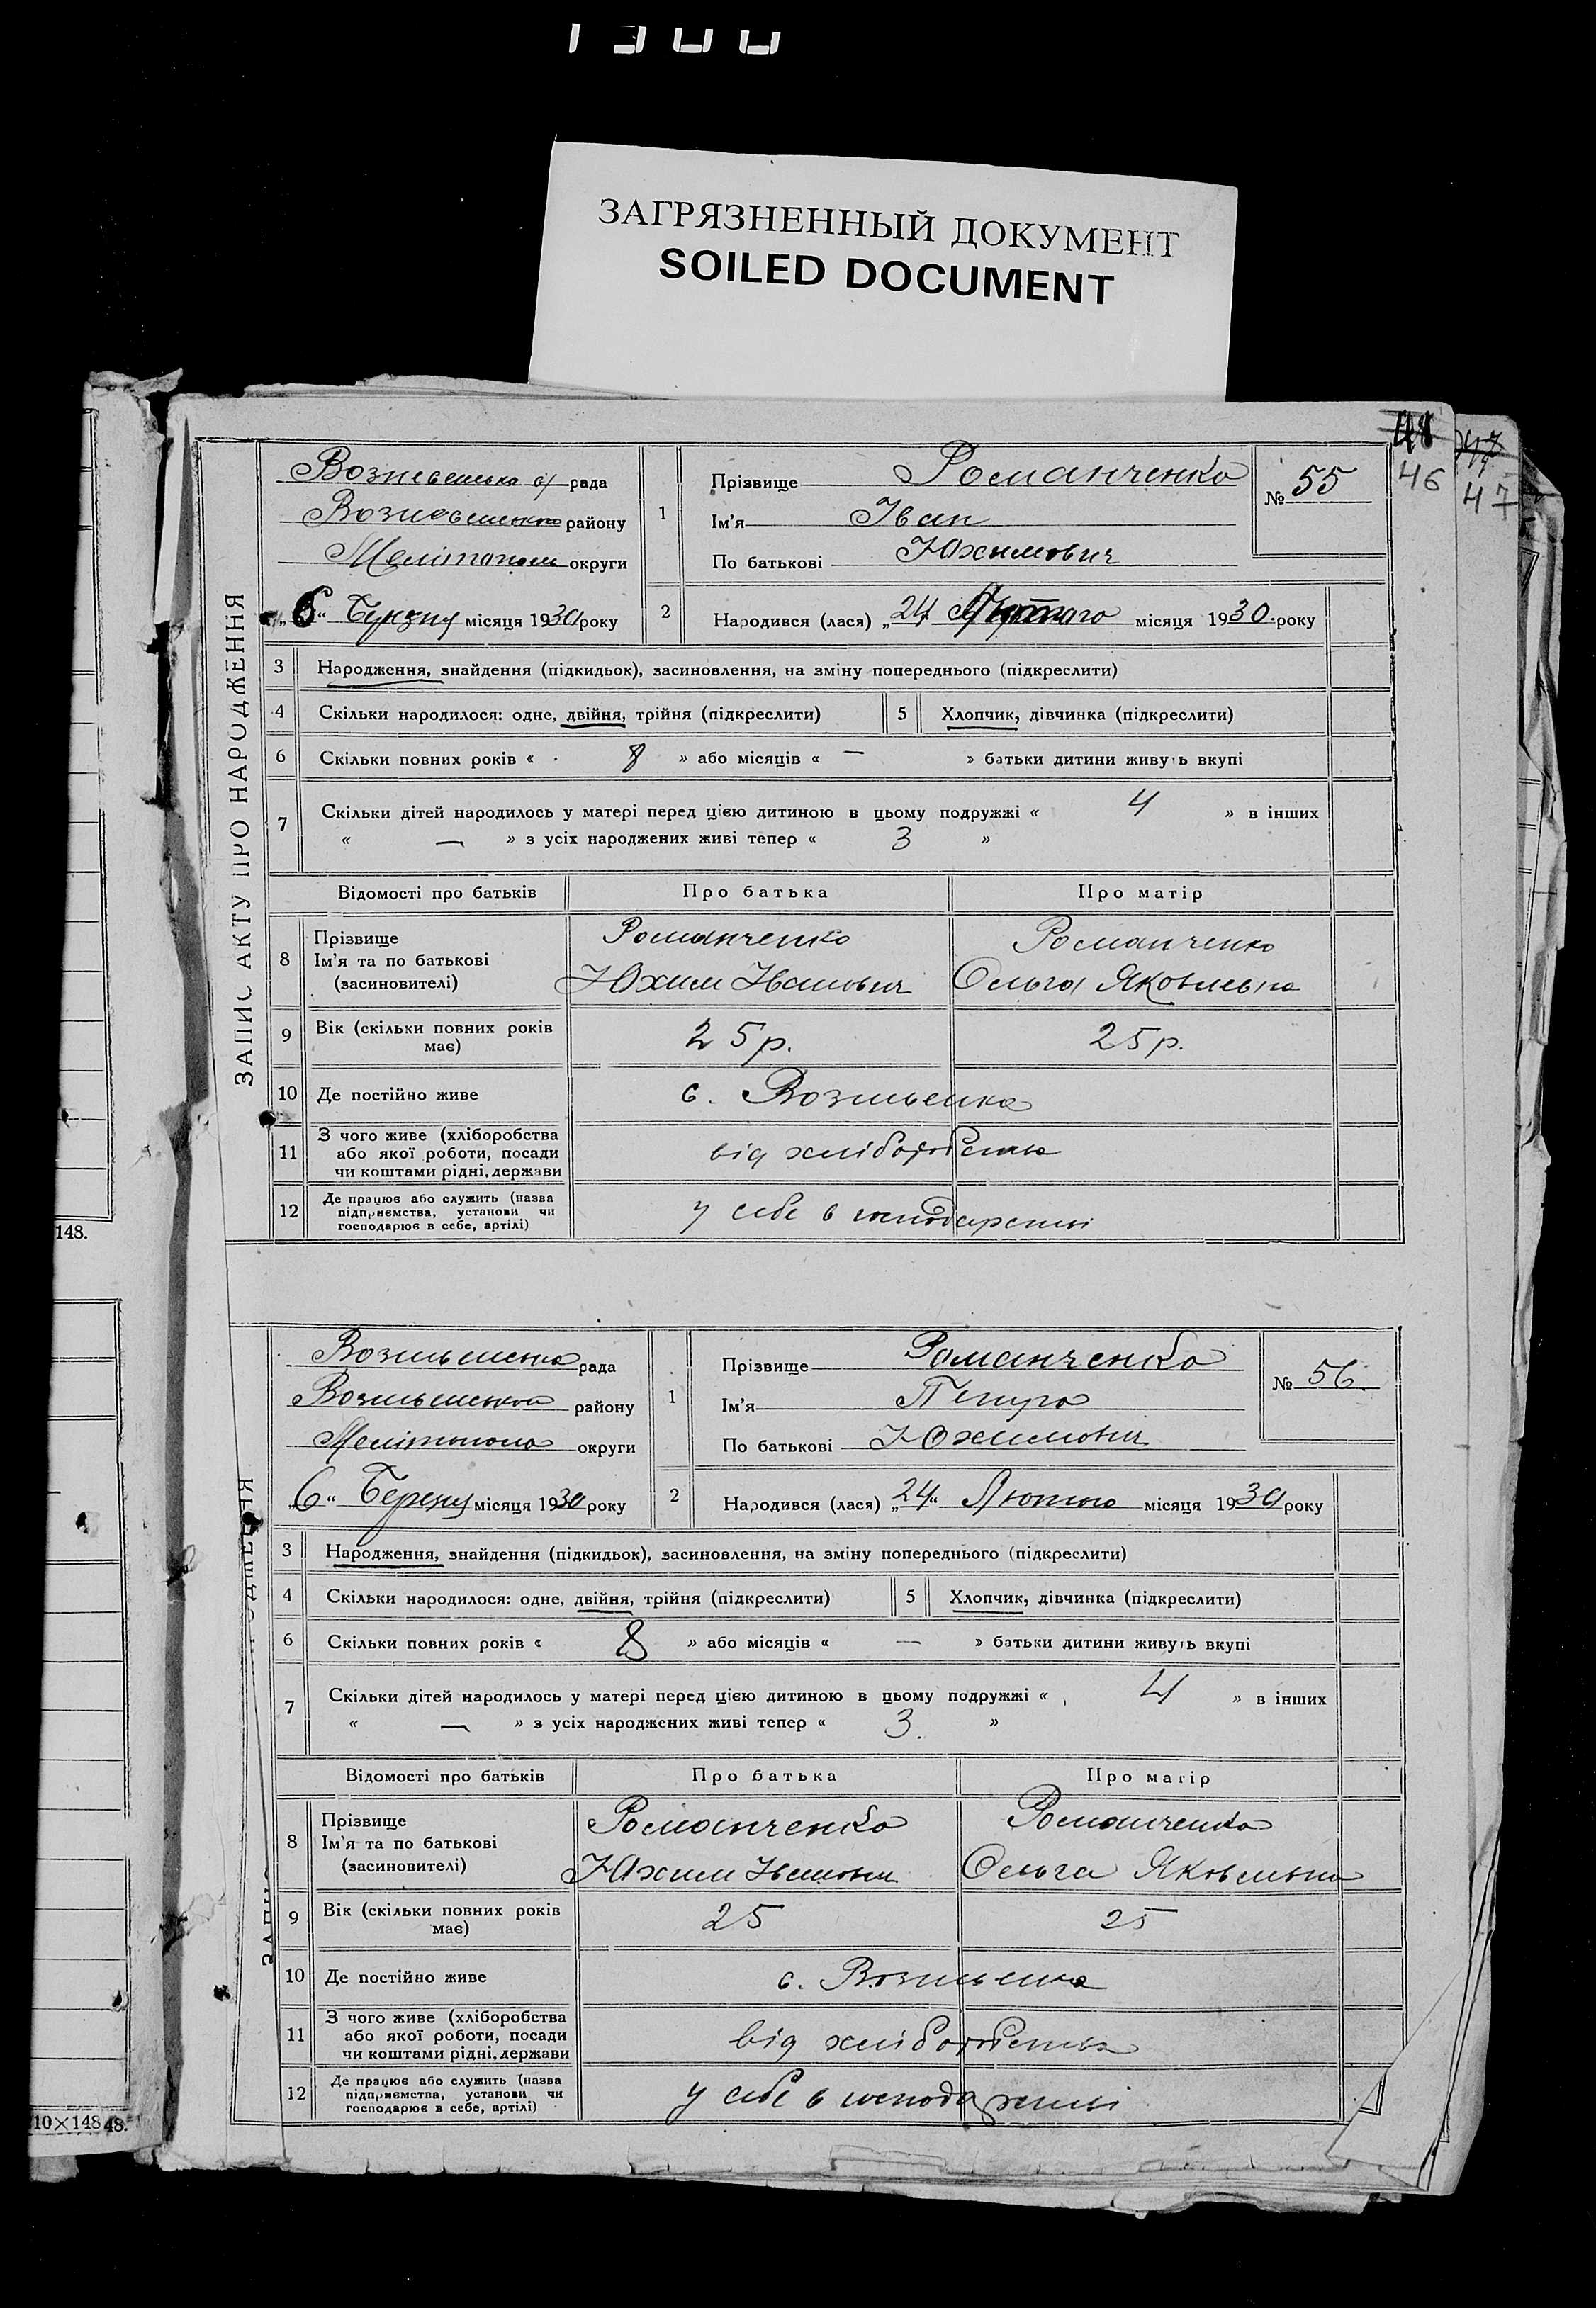 ЗАГРЯЗНЕННЫЙ ДОКУМЕНТ
SOILED DOCUMENT
46
47
148.
10×148
48.
ЗАПИС АКТУ ПРО НАРОДЖЕННЯ
рада
району
округи
„6“ Березня місяця 1930 року
1
Прізвище Романченко
Ім'я Іван
По батькові Юхимович
№ 55
2
Народився (лася) „24 Лютого місяця 1930 року
3 Народження, знайдення (підкидьок), засиновлення, на зміну попереднього (підкреслити)
4 Скільки народилося: одне, двійня, трійня (підкреслити) 5 Хлопчик, дівчинка (підкреслити)
6 Скільки повних років « 8 » або місяців « — » батьки дитини живуть вкупі
7 Скільки дітей народилось у матері перед цією дитиною в цьому подружжі « 4 » в інших
« — » з усіх народжених живі тепер « 3 »
Відомості про батьків Про батька Про матір
8 Прізвище Романченко Романченко
Ім'я та по батькові
(засиновителі) Юхим Іванович Ольга Яковлевна
9 Вік (скільки повних років має) 25 р. 25 р.
10 Де постійно живе с.
11 З чого живе (хліборобства
або якої роботи, посади
чи коштами рідні, держави
від хліборобства
12 Де працює або служить (назва
підприємства, установи чи
господарює в себе, артілі)
у себе в господарстві
рада
району
округи
„6“ Березня місяця 1930 року
1
Прізвище Романченко
Ім'я Петро
По батькові Юхимович
№ 56.
2
Народився (лася) „24“ Лютого місяця 1930 року
3 Народження, знайдення (підкидьок), засиновлення, на зміну попереднього (підкреслити)
4 Скільки народилося: одне, двійня, трійня (підкреслити) 5 Хлопчик, дівчинка (підкреслити)
6 Скільки повних років « 8 » або місяців « — » батьки дитини живуть вкупі
7 Скільки дітей народилось у матері перед цією дитиною в цьому подружжі « 4 » в інших
« — » з усіх народжених живі тепер « 3. »
Відомості про батьків Про батька Про матір
8 Прізвище Романченко Романченко
Ім'я та по батькові
(засиновителі) Юхим Іванович Ольга Яковлевна
9 Вік (скільки повних років має) 25 25
10 Де постійно живе с.
11 З чого живе (хліборобства
або якої роботи, посади
чи коштами рідні, держави
від хліборобства
12 Де працює або служить (назва
підприємства, установи чи
господарює в себе, артілі)
у себе в господарстві